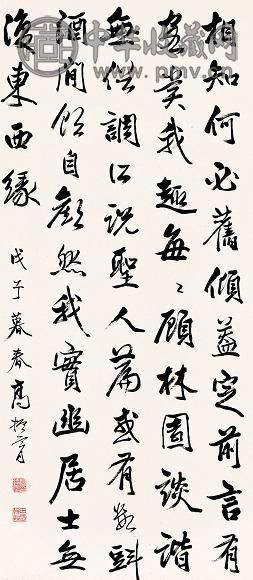 中华收藏网
相知何必舊傾蓋定前言有
客賞我趣每〻顧林園談諧
無俗調所說聖人篇或有數斗
酒閒飲自歡然我實幽居士無
復東西緣
戊子暮春高振霄